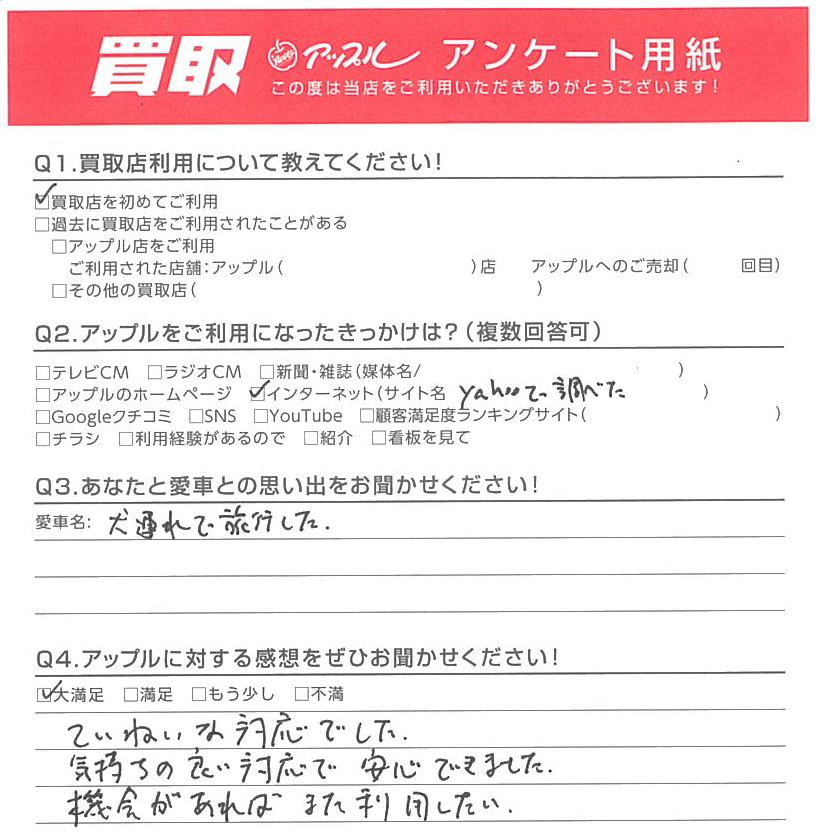 買取 アップル アンケート用紙
この度は当店をご利用いただきありがとうございます!
Q1.買取店利用について教えてください!
☑買取店を初めてご利用
□過去に買取店をご利用されたことがある
□アップル店をご利用
ご利用された店舗:アップル( )店 アップルへのご売却( 回目)
□その他の買取店( )
Q2.アップルをご利用になったきっかけは?(複数回答可)
□テレビCM □ラジオCM □新聞・雑誌(媒体名/ )
□アップルのホームページ ☑インターネット(サイト名 yahooで調べた )
□Googleクチコミ □SNS □YouTube □顧客満足度ランキングサイト( )
□チラシ □利用経験があるので □紹介 □看板を見て
Q3.あなたと愛車との思い出をお聞かせください!
愛車名: 犬連れで旅行した.
Q4.アップルに対する感想をぜひお聞かせください!
☑大満足 □満足 □もう少し □不満
ていねいな対応でした.
気持ちの良い対応で安心できました.
機会があればまた利用したい.